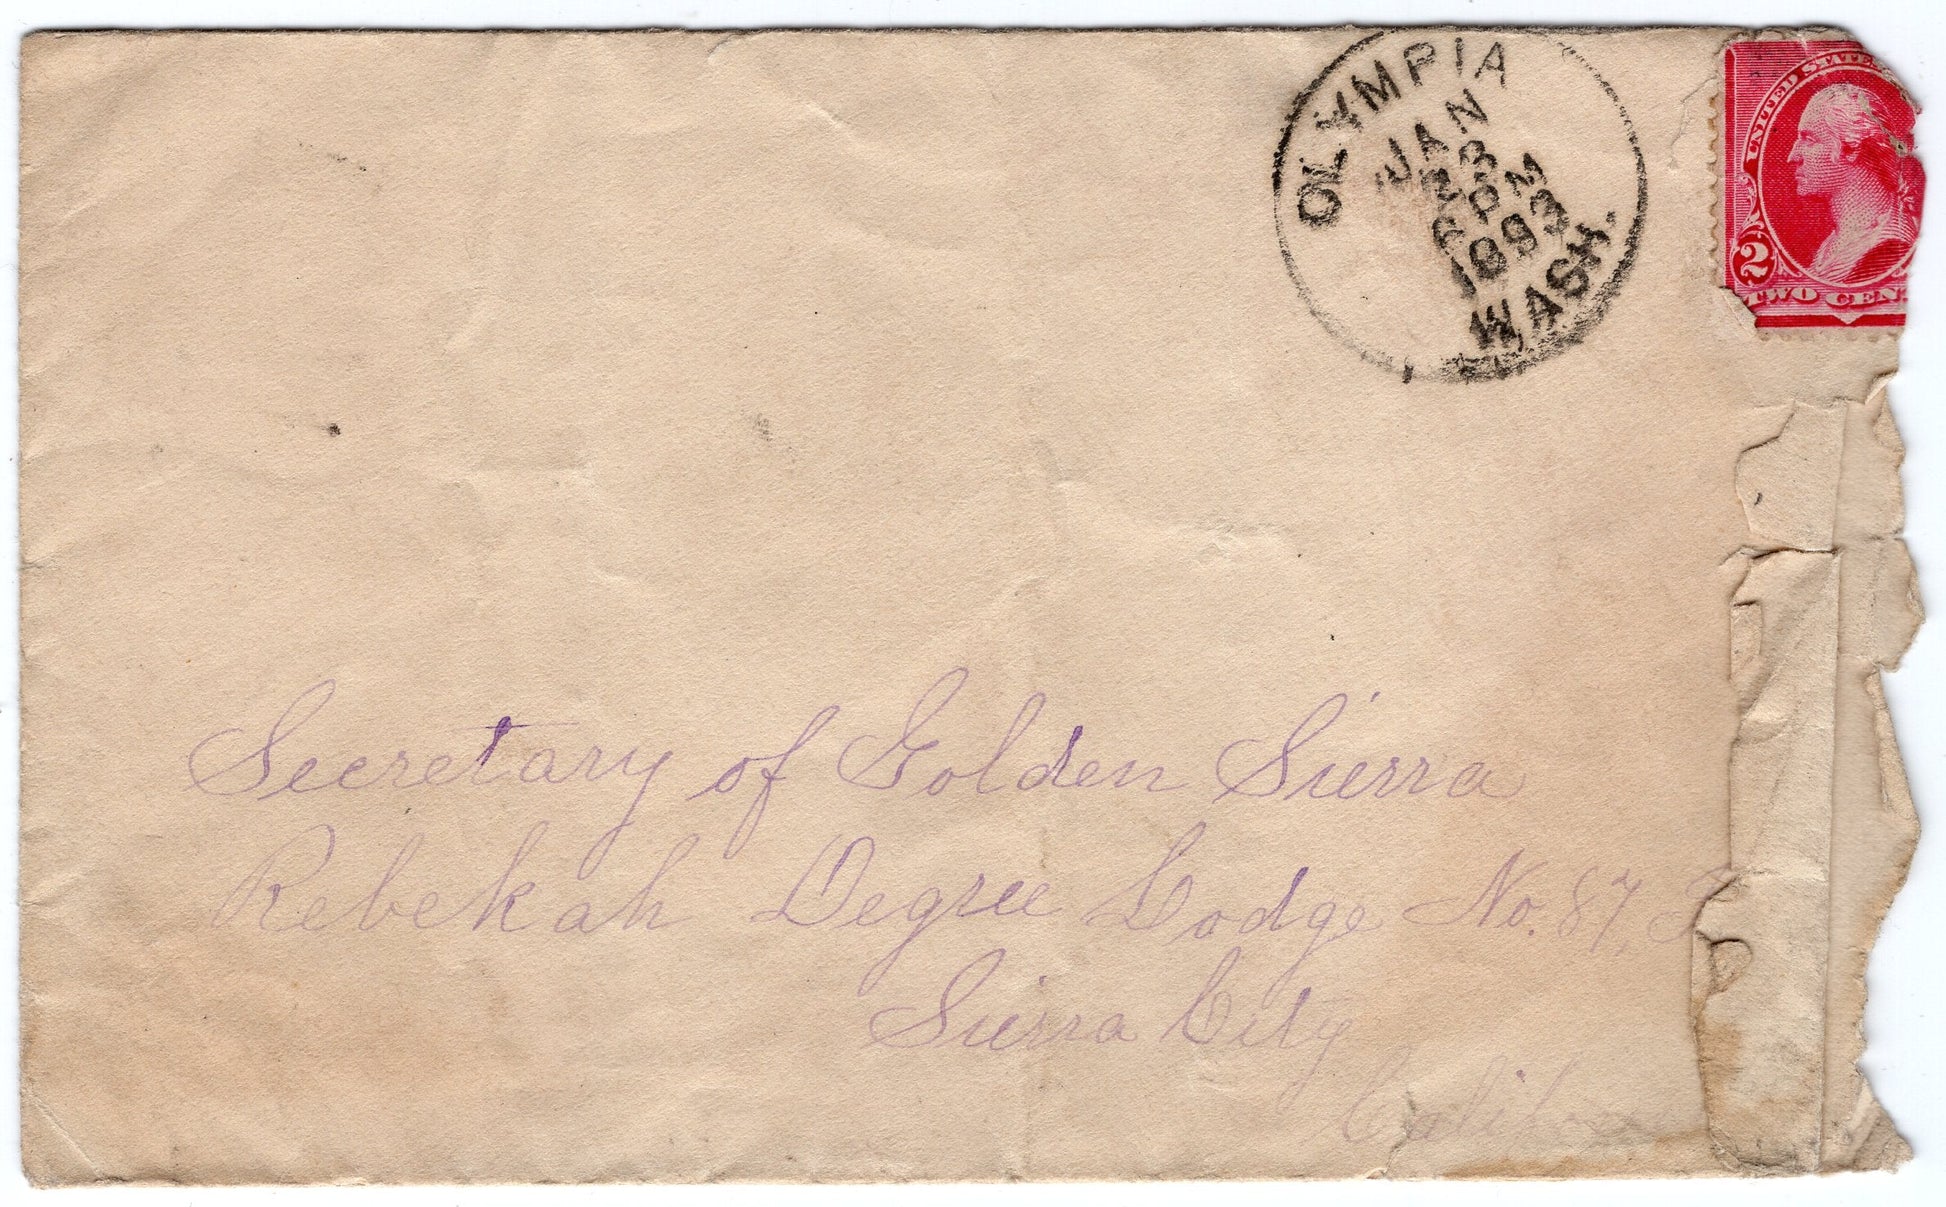 OLYMPIA
JAN
23
6 PM
1893
WASH.
UNITED STATES
2
TWO CEN
Secretary of Golden Sierra
Rebekah Degree Lodge No. 87,
Sierra City
Califor